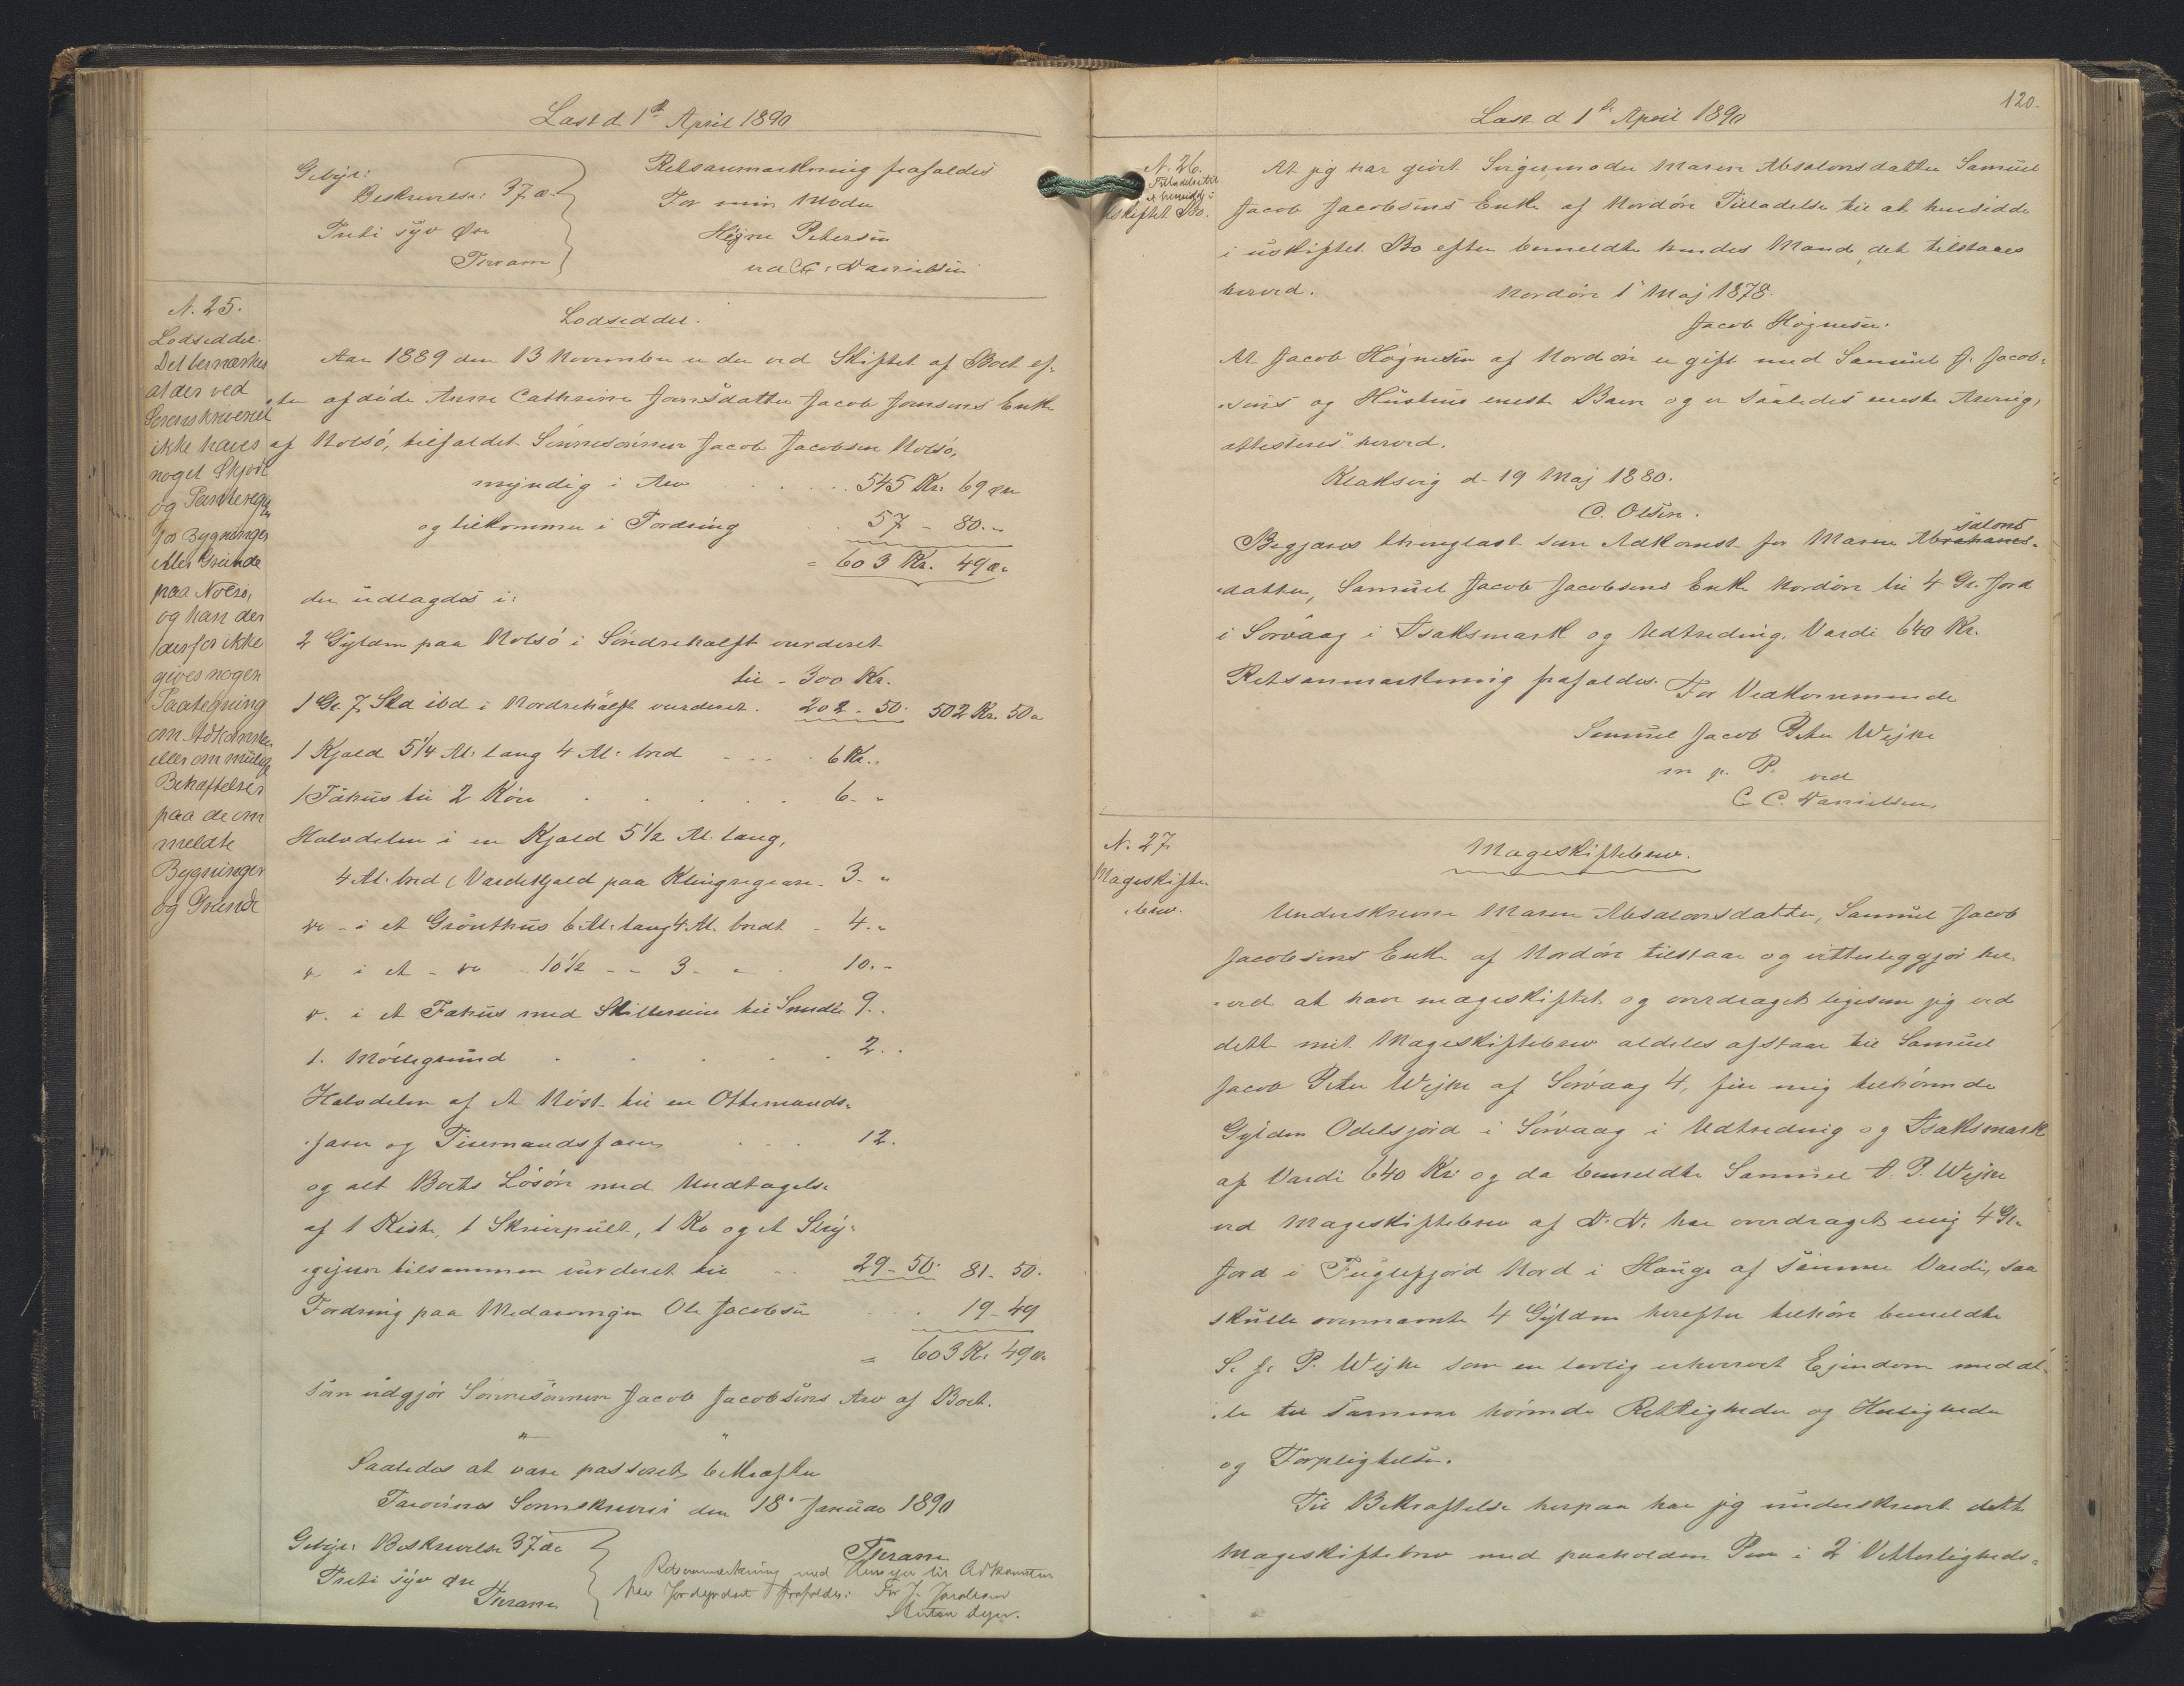 Læst d 1ste April 1890
Gebyr:
Beskrivelse: 37 ø.
Treti syv Øre
Retsanmærkning frafaldes
For min Moder
Högne Petersen
ved C.C. Danielsen
N. 25.
Lodseddel.
Det bemærkes
at der ved
Sorenskriveriet
ikke haves
noget Skjøde
og Panteregr
for Bygninger
eller Grunde
paa Nolsø,
og kan der
derfor ikke
gives nogen
Paategning
om Adkomster
eller om mulige
Behæftelser
paa de om
meldte
Bygninger
og Grunde
Lodseddel.
Aar 1889 den 13 November er der ved Skiftet af Boet ef-
ter afdöde Anne Cathrine Joensdatter Jacob Joensens Enke
af Nolsö, tilfaldet Sönnesönnen Jacob Jacobsen Nolsö,
myndig i Arv . . . . 545 Kr. 69 Øre
og tilkommer i Fordring . . 57 - 80. -
= 603 Kr. 49 Ø.
der udlagdes i:
2 Gylden paa Nolsö i Söndrehalft vurderet
til - 300 Kr.
1 Gl. 7 Skd ibd i Nordrehalft vurderet . 202 - 50. 502 Kr. 50 ø
1 Kjald 5 1/4 Al. lang 4 Al. bred . . . . 6 Kr. .
1 Fähus til 2 Köer . . . . . 6. "
Halvdelen i en Kjald 5 1/2 Al. lang,
4 Al. bred (Vardekjald paa Klingregeare . 3. "
do - i et Gröuthus 6 Al. lang 4 Al. bredt - 4. "
do i et - do - 10 1/2 - - 3 - " . 10. -
do. i et Fæhus med Skillerum til Smudr 9. .
1. Möllegrund . . . . . 2. .
Halvdelen af et Nöst til en Ottemands-
farer og Tiermandsfarer . . . 12.
og alt Boets Lösöre med Undtagelse
af 1 Kiste, 1 Skrivpult, 1 Ko og et Stry-
gejern tilsammen vurderet til . . 29 - 50. 81 - 50.
Fordring paa Medarvingen Ole Jacobsen . . 19 - 49
= 603 Kr. 49 Ø.
som udgjör Sönnesönnen Jacob Jacobsens Arv af Boet.
" "
Saaledes at være passeret, bekræfter
Færöernes Sorenskriveri den 18. Januar 1890
Gebyr: Beskrivelse 37 Øre
Treti syv Øre
Retsanmærkning med Hensyn til Adkomsten
til Jordegodset frafaldes. For J. Jacobsen
120.
Læst d 1ste April 1890
N. 26.
Tilladelse til
at hensidde i
uskiftet Bo.
At jeg har givet Svigermoder Maren Absalonsdatter Samuel
Jacob Jacobsens Enke af Nordöre Tilladelse til at hensidde
i uskiftet Bo efter bemeldte hendes Mand, det tilstaaes
herved. Nordöre 1 Maj 1878.
Jacob Högnesen.
At Jacob Högnesen af Nordöre er gift med Samuel J. Jacob-
sens og Hustrus eneste Barn og er saaledes eneste Arving,
attesteres herved.
Klaksvig d. 19 Maj 1880.
C. Olsen.
Begjæres thinglæst som Adkomst for Maren Absalons-
datter, Samuel Jacob Jacobsens Enke Nordöre til 4 Gl. Jord
i Sörvaag i Isaksmark og Udtrediug. Værdi 640 Kr.
Retsanmærkning frafaldes. For Vedkommende
Samuel Jacob Peter Wejhe
m. p. P. ved
C. C. Danielsen,
N. 27
Mageskifte
brev.
Mageskiftebrev.
Underskrevne Maren Absalonsdatter, Samuel Jacob
Jacobsens Enke af Nordöre tilstaar og vitterliggjör her
ved at have mageskiftet og overdraget ligesom jeg ved
dette mit Mageskiftebrev aldeles afstaar til Samuel
Jacob Peter Wejhe af Sörvaag 4, fire mig tilhörende
Gylden Odelsjord i Sörvaag i Udtrediug og Isaksmark
af Værdi 640 Kr. og da bemeldte Samuel J. P. Wejhe
ved Mageskiftebrev af D. D. har overdraget mig 4 Gl.
Jord i Fuglefjord Nord i Hauge af samme Værdi, saa
skulle ovennævnte 4 Gylden herefter tilhöre bemeldte
S. J. P. Wejhe som en lovlig erhvervet Ejendom med al-
le til samme hörende Rettigheder og Herligheder
og Forpligtelser.
Til Bekræftelse herpaa har jeg underskrevet dette
Mageskiftebrev med paaholden Pen i 2 Vitterligheds-